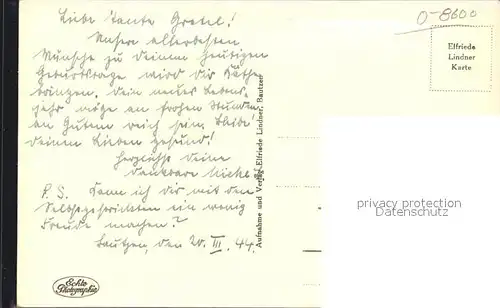 Liebe Tante Gretel!
Unsere allerbesten
Wünsche zu Deinem heutigen
Geburtstage wird Dir Käthe
bringen. Dein neues Lebens-
jahr möge an frohen Stunden
an Gutem reich sein. Bleibe
Deinen Lieben gesund!
Herzlichst Deine
dankbare
P.S. Kann ich Dir mit dem
Selbstgestrickten ein wenig
Freude machen?
Bautzen, den 20. III. 44.
Echte
Photographie
Aufnahme und Verlag Elfriede Lindner, Bautzen
0-8600
Elfriede
Lindner
Karte
privates Ansichtskarten
Datenschutz